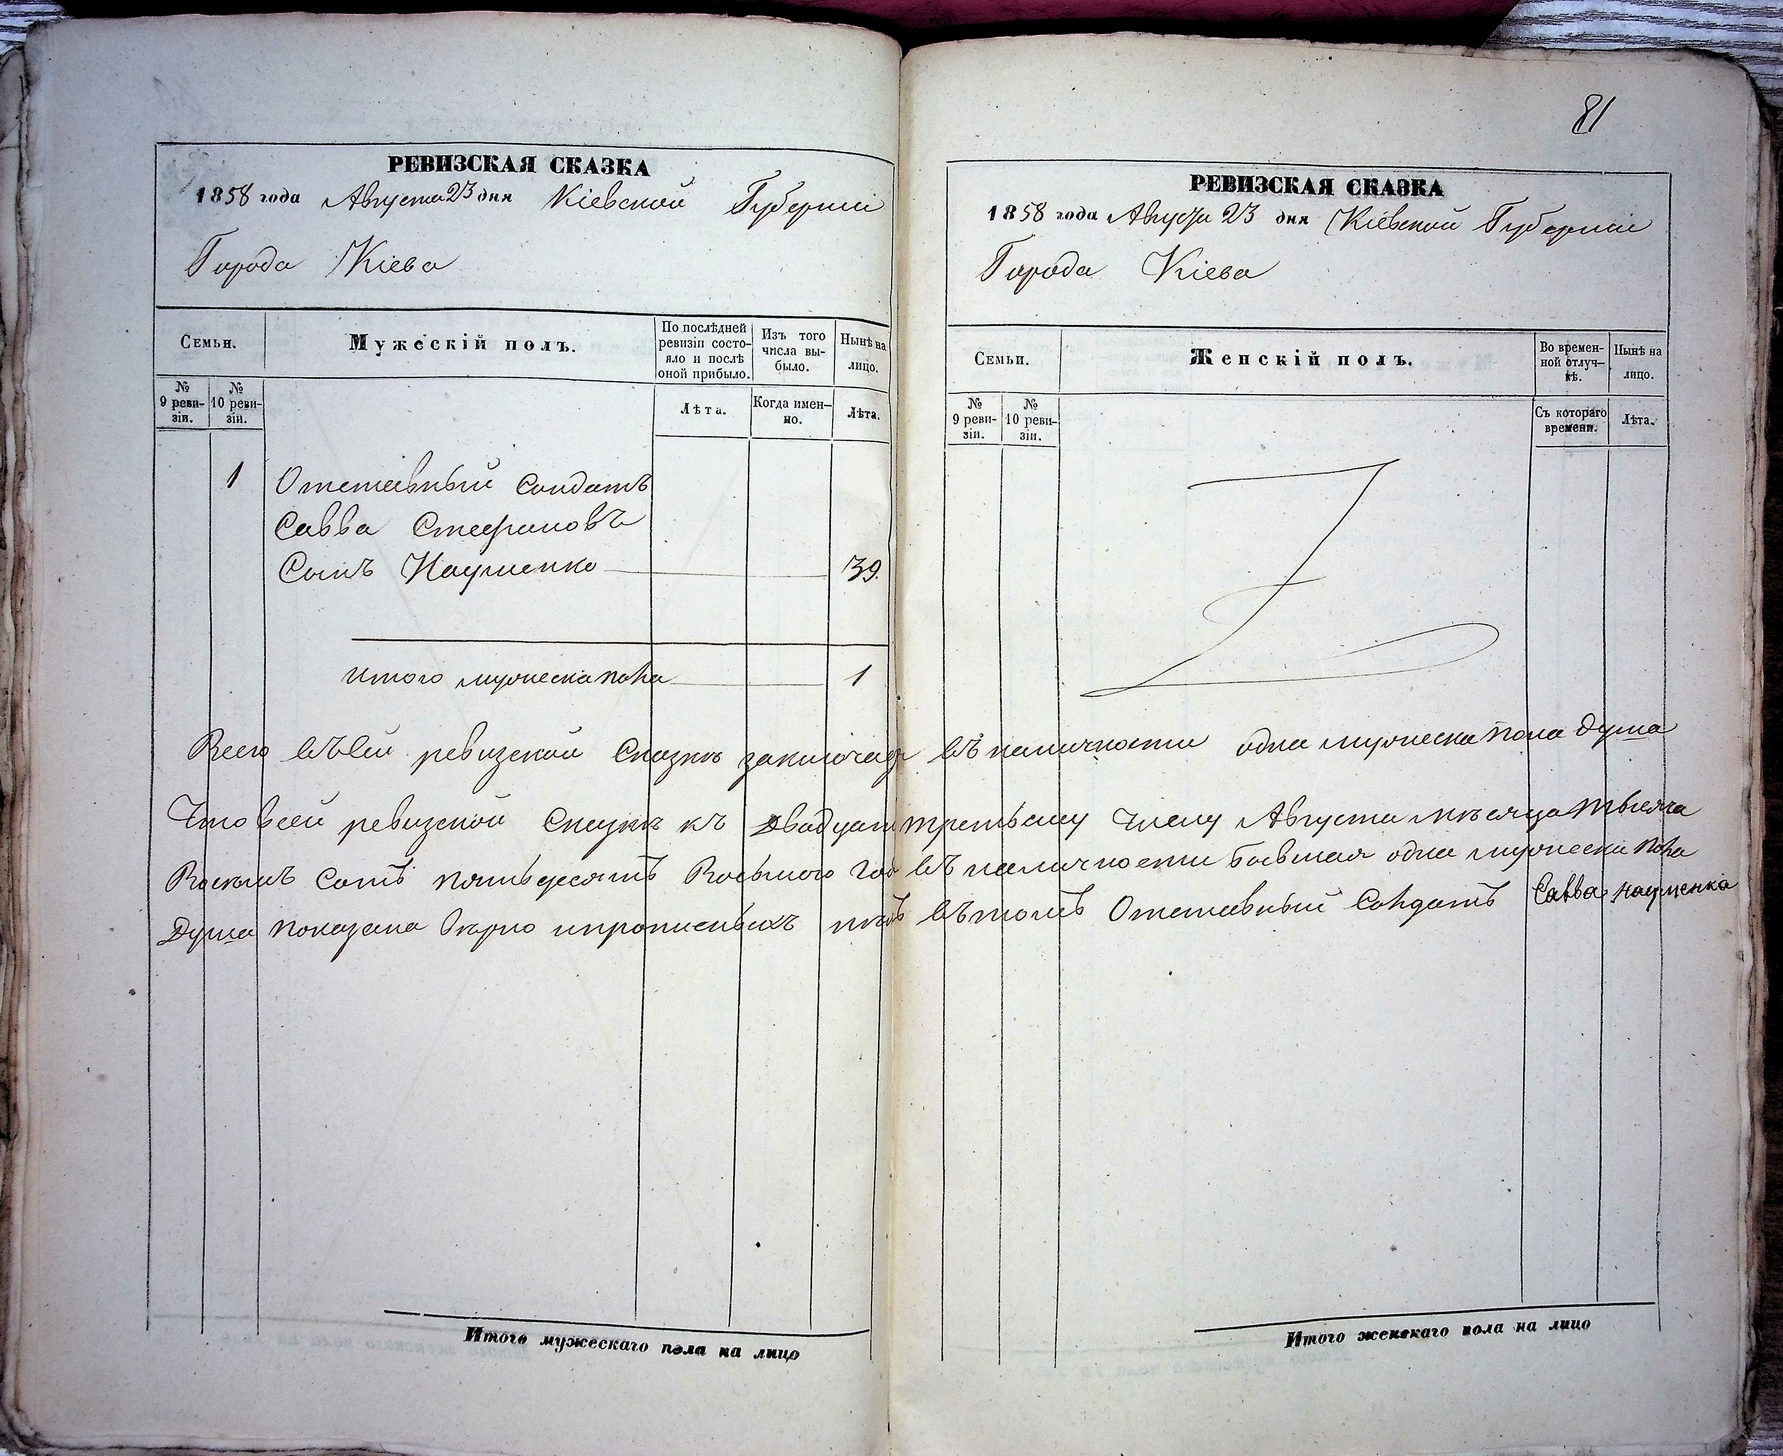 81
РЕВИЗСКАЯ СКАЗКА
1858 года Августа 23 дня Кіевской Губерніи
Города Кіева
Семьи.
Мужескій полъ.
По послѣдней ревизіи состояло и послѣ оной прибыло.
Изъ того числа выбыло.
Нынѣ на лицо.
№ 9 ревизіи.
№ 10 ревизіи.
Лѣта.
Когда именно.
Лѣта.
1 Отставный Солдатъ
Савва Стефановъ
Сынъ Науменко 39.
Итого мужеска пола 1
РЕВИЗСКАЯ СКАЗКА
1858 года Августа 23 дня Кіевской Губерніи
Города Кіева
Семьи.
Женскій полъ.
Во временной отлучкѣ.
Нынѣ на лицо.
№ 9 ревизіи.
№ 10 ревизіи.
Съ котораго времени.
Лѣта.
Всего въ сей ревизской Сказкѣ въ наличности одна мужеска пола душа
Что в сей ревизской Сказкѣ къ двадцати третьему числу Августа мѣсяца тысяча
Восемь Сотъ пятьдесятъ Восьмого год въ наличности бывшая одна мужеска пола
душа показана вѣрно и прописныхъ нѣтъ въ томъ Отставный Солдатъ Савва Науменко
Итого мужескаго пола на лицо
Итого женскаго пола на лицо